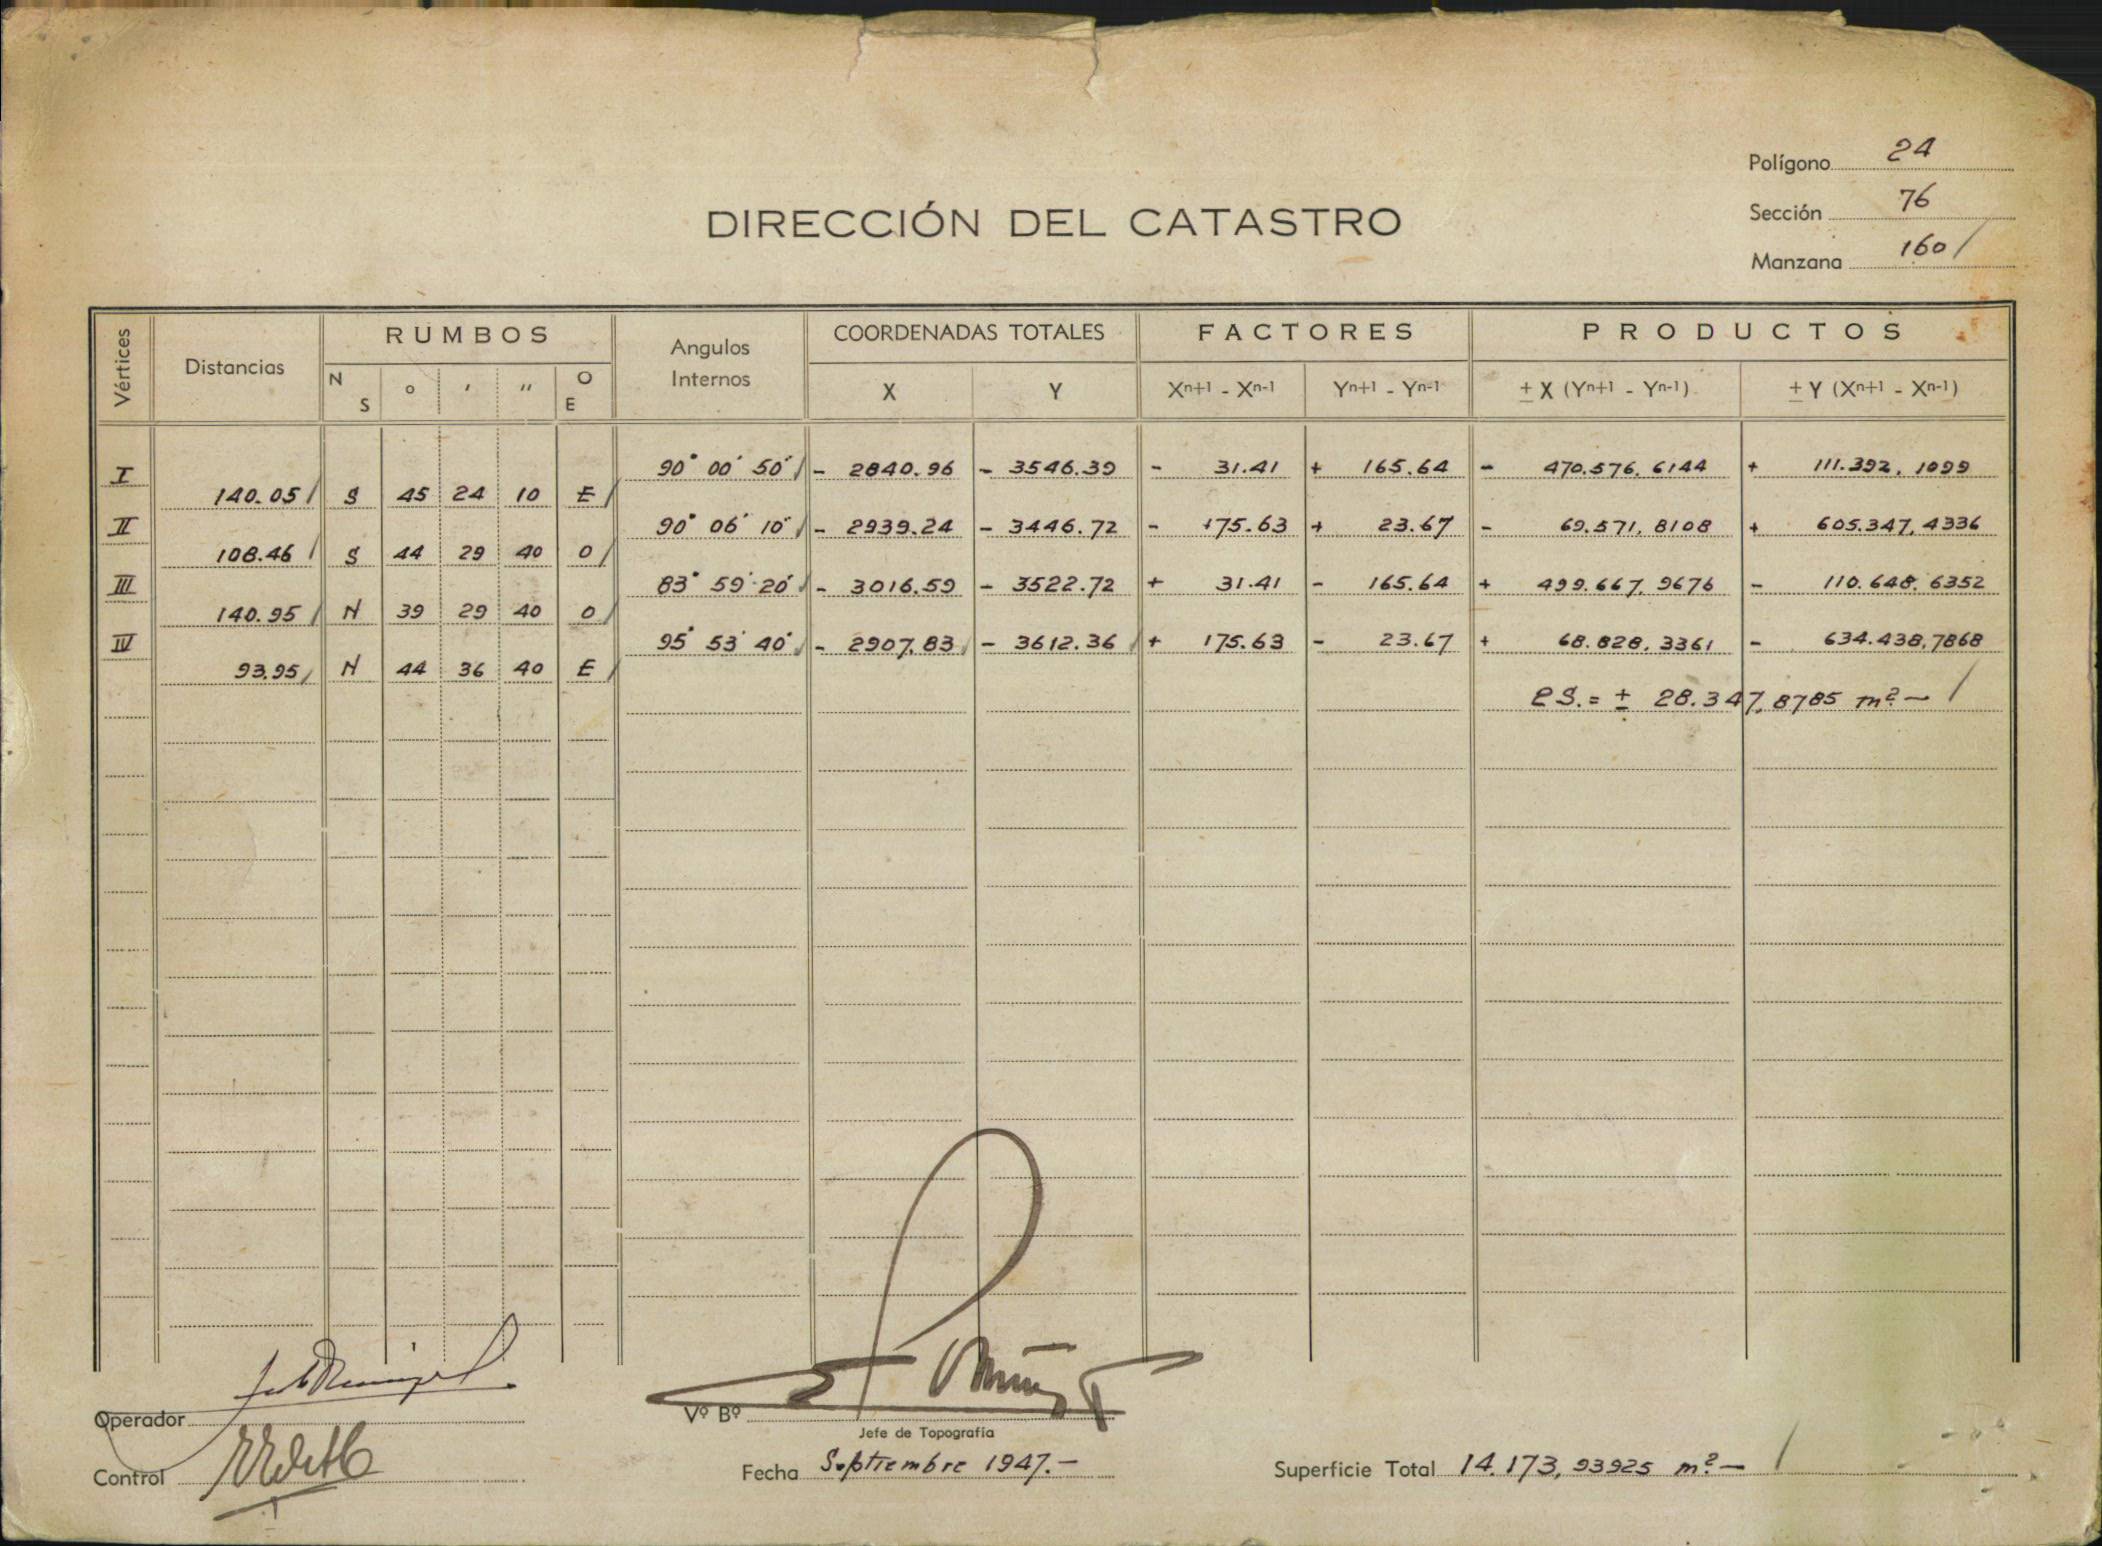 Polígono 24
Sección 76
Manzana 160
DIRECCIÓN DEL CATASTRO
Vértices Distancias RUMBOS Angulos Internos COORDENADAS TOTALES FACTORES PRODUCTOS
N S ° ' '' O E X Y Xn+1 - Xn-1 Yn+1 - Yn-1 ± X (Yn+1 - Yn-1) ± Y (Xn+1 - Xn-1)
I 90° 00' 50'' - 2840.96 - 3546.39 - 31.41 + 165.64 - 470.576,6144 + 111.392,1099
140.05 S 45 24 10 E
II 90° 06' 10'' - 2939.24 - 3446.72 - 175.63 + 23.67 - 69.571,8108 + 605.347,4336
108.46 S 44 29 40 O
III 83° 59' 20'' - 3016.59 - 3522.72 + 31.41 - 165.64 + 499.667,9676 - 110.648,6352
140.95 N 39 29 40 O
IV 95° 53' 40'' - 2907.83 - 3612.36 + 175.63 - 23.67 + 68.828,3361 - 634.438,7868
93.95 N 44 36 40 E
2S. = ± 28.347,8785 m² —
Operador
Vº Bº
Jefe de Topografía
Control
Fecha Septiembre 1947.-
Superficie Total 14.173,93925 m² —